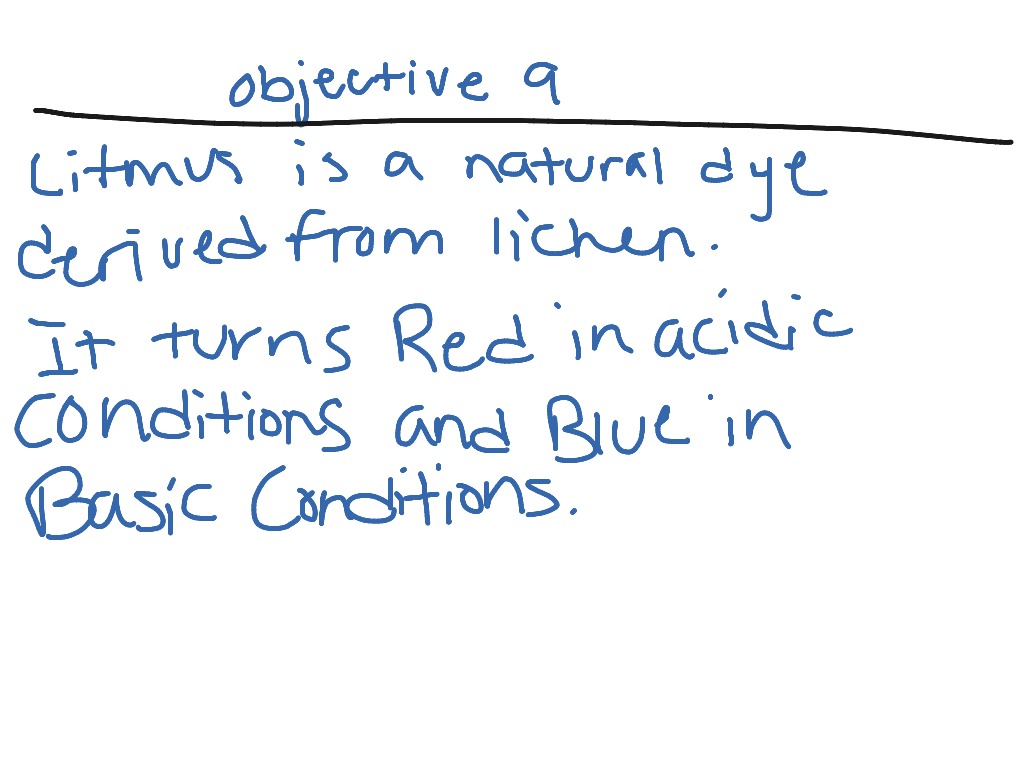 objective 9
Litmus is a natural dye
derived from lichen.
It turns Red in acidic
Conditions and Blue in
Basic Conditions.